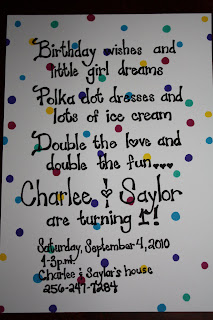 Birthday wishes and
little girl dreams
Polka dot dresses and
lots of ice cream
Double the love and
double the fun...
Charlee & Saylor
are turning 1!!
Saturday, September 4, 2010
1-3p.m.
Charlee & Saylor's house
256-247-7284